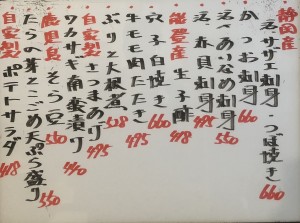 静岡産
活サザエ刺身・つぼ焼き 660
かつお刺身 660
活〆あいなめ刺身 550
活〆赤貝刺身 495
能登産 生子酢 418
穴子白焼き 660
牛モモ肉たたき 495
ぶり大根煮 528
自家製 さつまあげ 495
ワカサギ南蛮漬け 440
鹿児島 そら豆 550
たらの芽そこごめ天ぷら盛り 550
自家製 ポテトサラダ 418